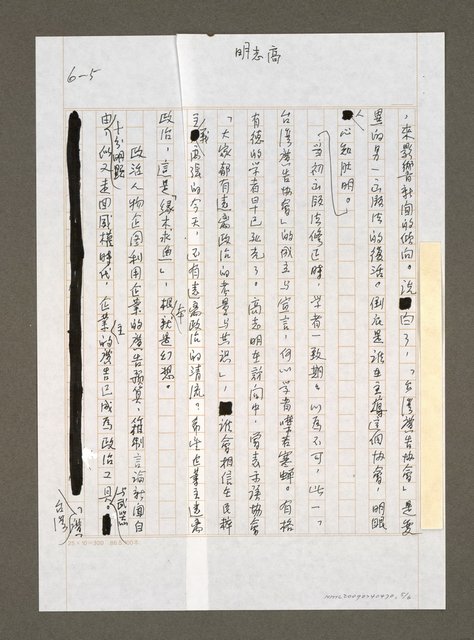 高志明
6-5
，來影響新聞的傾向。說白了，「台灣廣告協會」是變
異的另一出版法的復活。倒底是誰在主導這個協會，明眼
人心知肚明。
「當初出版法修正時，學者一致期期以為不可，此一「
台灣廣告協會」的成立與宣言，何以學者噤若寒蟬。有格
有德的學者早已死光了。高志明在新聞中，曾表示該協會
「大家都有遠離政治的考量與共識」，誰會相信在民粹
主義高漲的今天，不有遠離政治的清流。希望企業主遠離
政治，這是「緣木求魚」，根本就是幻想。
政治人物企圖利用企業的廣告預算，箝制言論新聞自
由，十分明顯似又走回威權時代，企業主的廣告已成為政治工具與武器。
「台灣
25×12=300
NMTL20090240470, 5/6